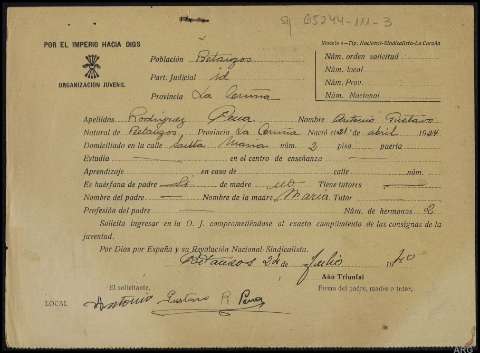 sg 65244-111-3
POR EL IMPERIO HACIA DIOS
ORGANIZACION JUVENIL
Modelo 4.-Tip. Nacional-Sindicalista-La Coruña
Población Betanzos
Part. Judicial id
Provincia La Coruña
Núm. orden solicitud
Núm. local
Núm. Prov.
Núm. Nacional
Apellidos Rodriguez Pena Nombre Antonio Gustavo
Natural de Betanzos, Provincia La Coruña Nació el 21 de abril 1924
Domiciliado en la calle Santa Maria núm. 2 piso puerta
Estudia — en centro de enseñanza —
Aprendizaje en casa de calle núm.
Es huérfano de padre Si de madre no Tiene tutores —
Nombre del padre — Nombre de la madre Maria Tutor
Profesión del padre — Núm. de hermanos 2
Solicita ingresar en la O. J. comprometiéndose al exacto cumplimiento de las consignas de la
juventud.
Por Dios por España y su Revolución Nacional-Sindicalista.
Betanzos 2 de Julio 1940
Año Triunfal
El solicitante, Firma del padre, madre o tutor,
LOCAL Antonio Gustavo R. Pena
ARG